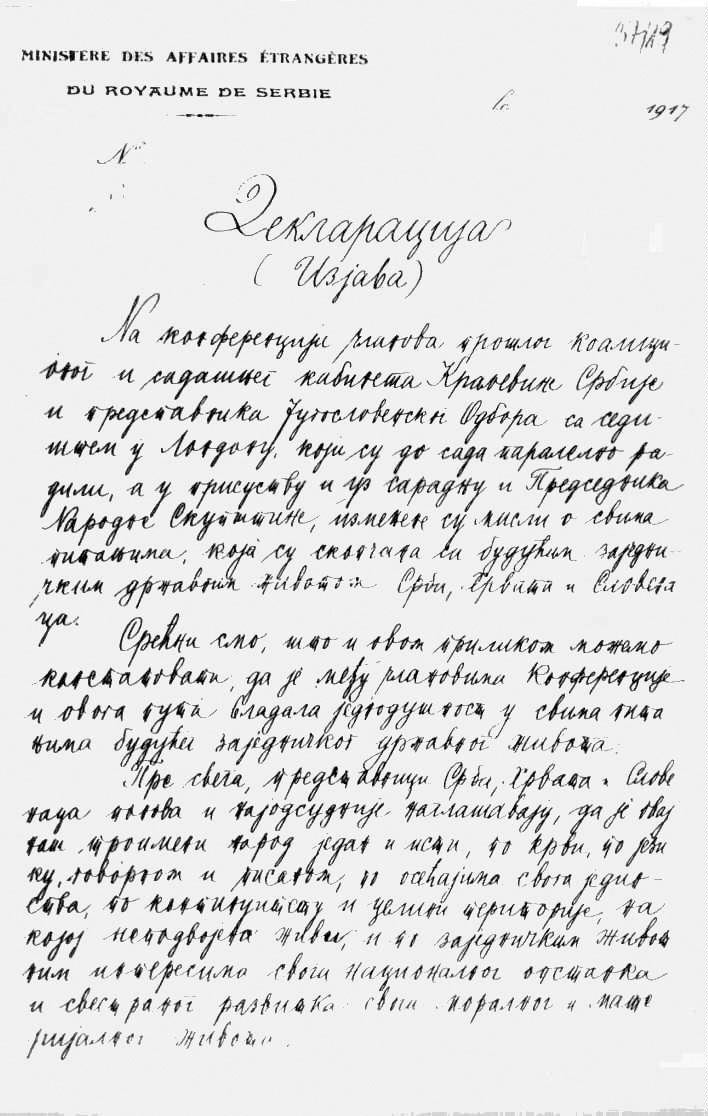 MINISTERE DES AFFAIRES ÉTRANGÈRES
DU ROYAUME DE SERBIE
le 1917
No
Декларација
( Изјава )
На конференцији чланова прошлог коалици-
оног и садашњег кабинета Краљевине Србије
и представника Југословенског Одбора са седи-
штем у Лондону, који су до сада паралелно ра-
дили, а у присуству и уз сарадњу и Председника
Народне Скупштине, измењене су мисли о свима
питањима, која су скопчана са будућим заједни-
чким државним животом Срба, Хрвата и Словена
ца.
Срећни смо, што и овом приликом можемо
констатовати, да је међу члановима Конференције
и овога пута владала једнодушност у свима пита
њима будућег заједничког државног живота.
Пре свега, представници Срба, Хрвата и Слове
наца понова и најодсудније наглашавају, да је овај
наш троимени народ један и исти, по крви, по јези
ку, говорном и писаном, по осећајима свога једин-
ства, по континуитету и целини територије, на
којој неподвојено живи, и по заједничким живот
ним интересима свога националног опстанка
и свестраног развитка свога моралног и мате
ријалног живота.